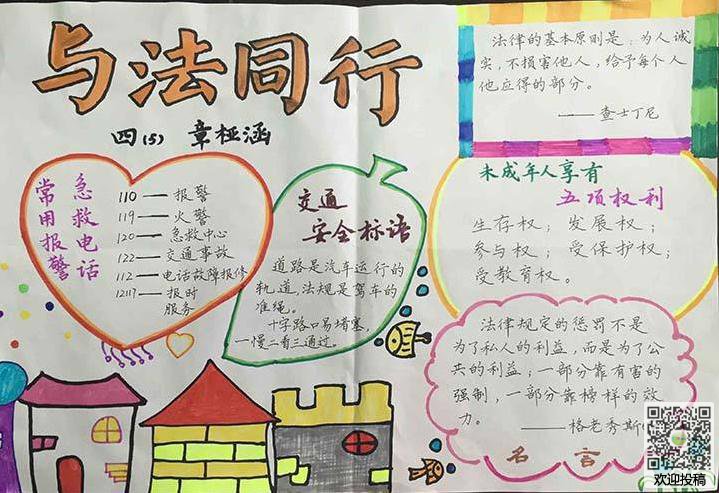 与法同行
四(5) 章桠涵
常用报警
急救电话
110——报警
119——火警
120——急救中心
122——交通事故
112——电话故障报修
12117——报时
服务
交通
安全标语
道路是汽车运行的
轨道,法规是驾车的
准绳。
十字路口易堵塞,
一慢二看三通过。
法律的基本原则是:为人诚
实,不损害他人,给予每个人
他应得的部分。
——查士丁尼
未成年人享有
五项权利
生存权;发展权;
参与权;受保护权;
受教育权。
法律规定的惩罚不是
为了私人的利益,而是为了公
共的利益;一部分靠有害的
强制,一部分靠榜样的效
力。
——格老秀斯
名言
欢迎投稿